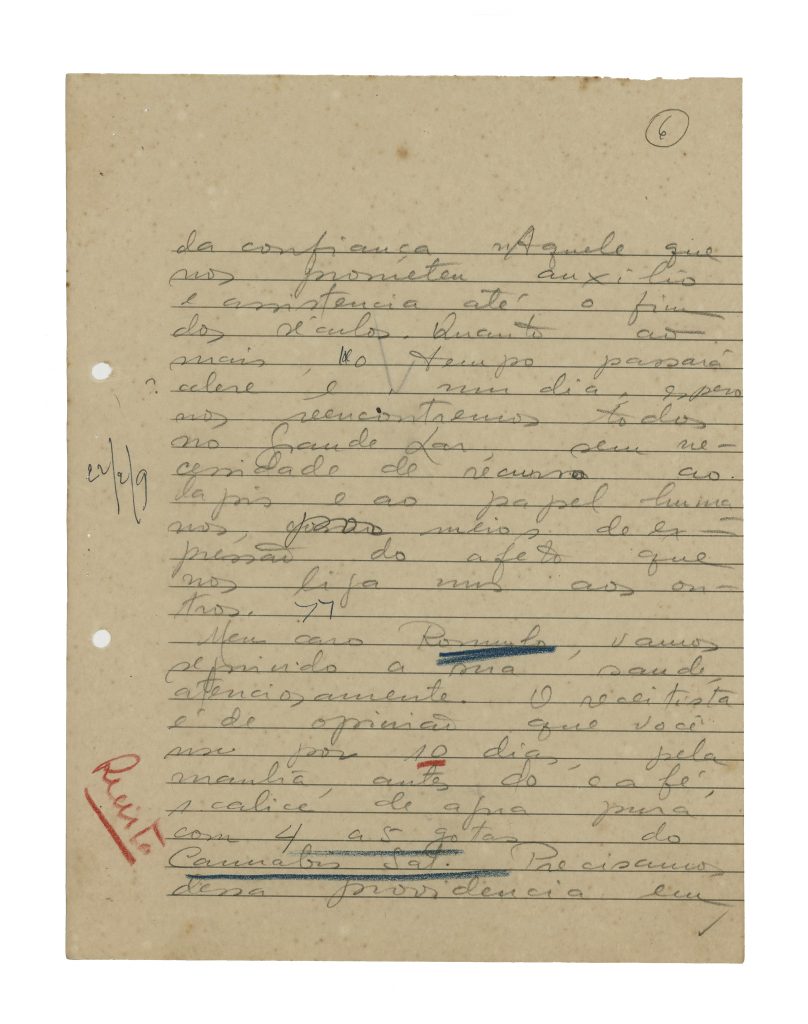 6
da confiança nAquele que
nos prometeu auxilio
e assistencia até o fim
dos séculos. Quanto ao
mais, o tempo passará
célere e um dia, espero
nos reencontremos todos
no Grande Lar sem ne-
cessidade de recurso ao
lapis e ao papel huma
nos, meios de ex-
pressão do afeto que
nos liga uns aos ou-
tros. "
Meu caro Romulo, vamos
seguindo a sua saude,
atenciosamente. O receitista
é de opinião que você
use por 10 dias, pela
manhã, antes do café,
1 calice de agua pura
com 4 a 5 gotas do
Cannabis Sat. Precisamos
dessa providencia em
Receita